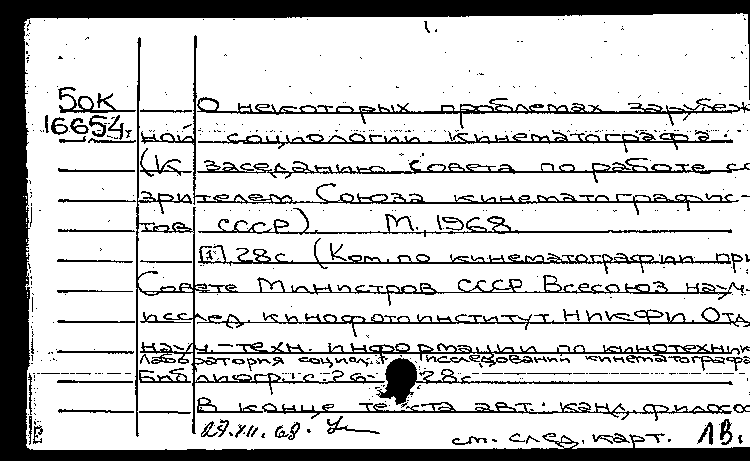 1.
50К О некоторых проблемах зарубеж
16654. ной социологии кинематографа.
(К заседанию совета по работе со
зрителем Союза кинематографис-
тов СССР). М., 1968.
[1], 28с. (Ком. по кинематографии при
Совете Министров СССР. Всесоюз науч.-
исслед. кинофотоинститут. НИКФИ. Отд.
науч.-техн. информации по кинотехник
Лаборатория социол. исследований кинематографа
Библиогр.: с. 26-28с.
В конце текста авт.: канд. философ
27.XII.68.
см. след. карт. 1В.